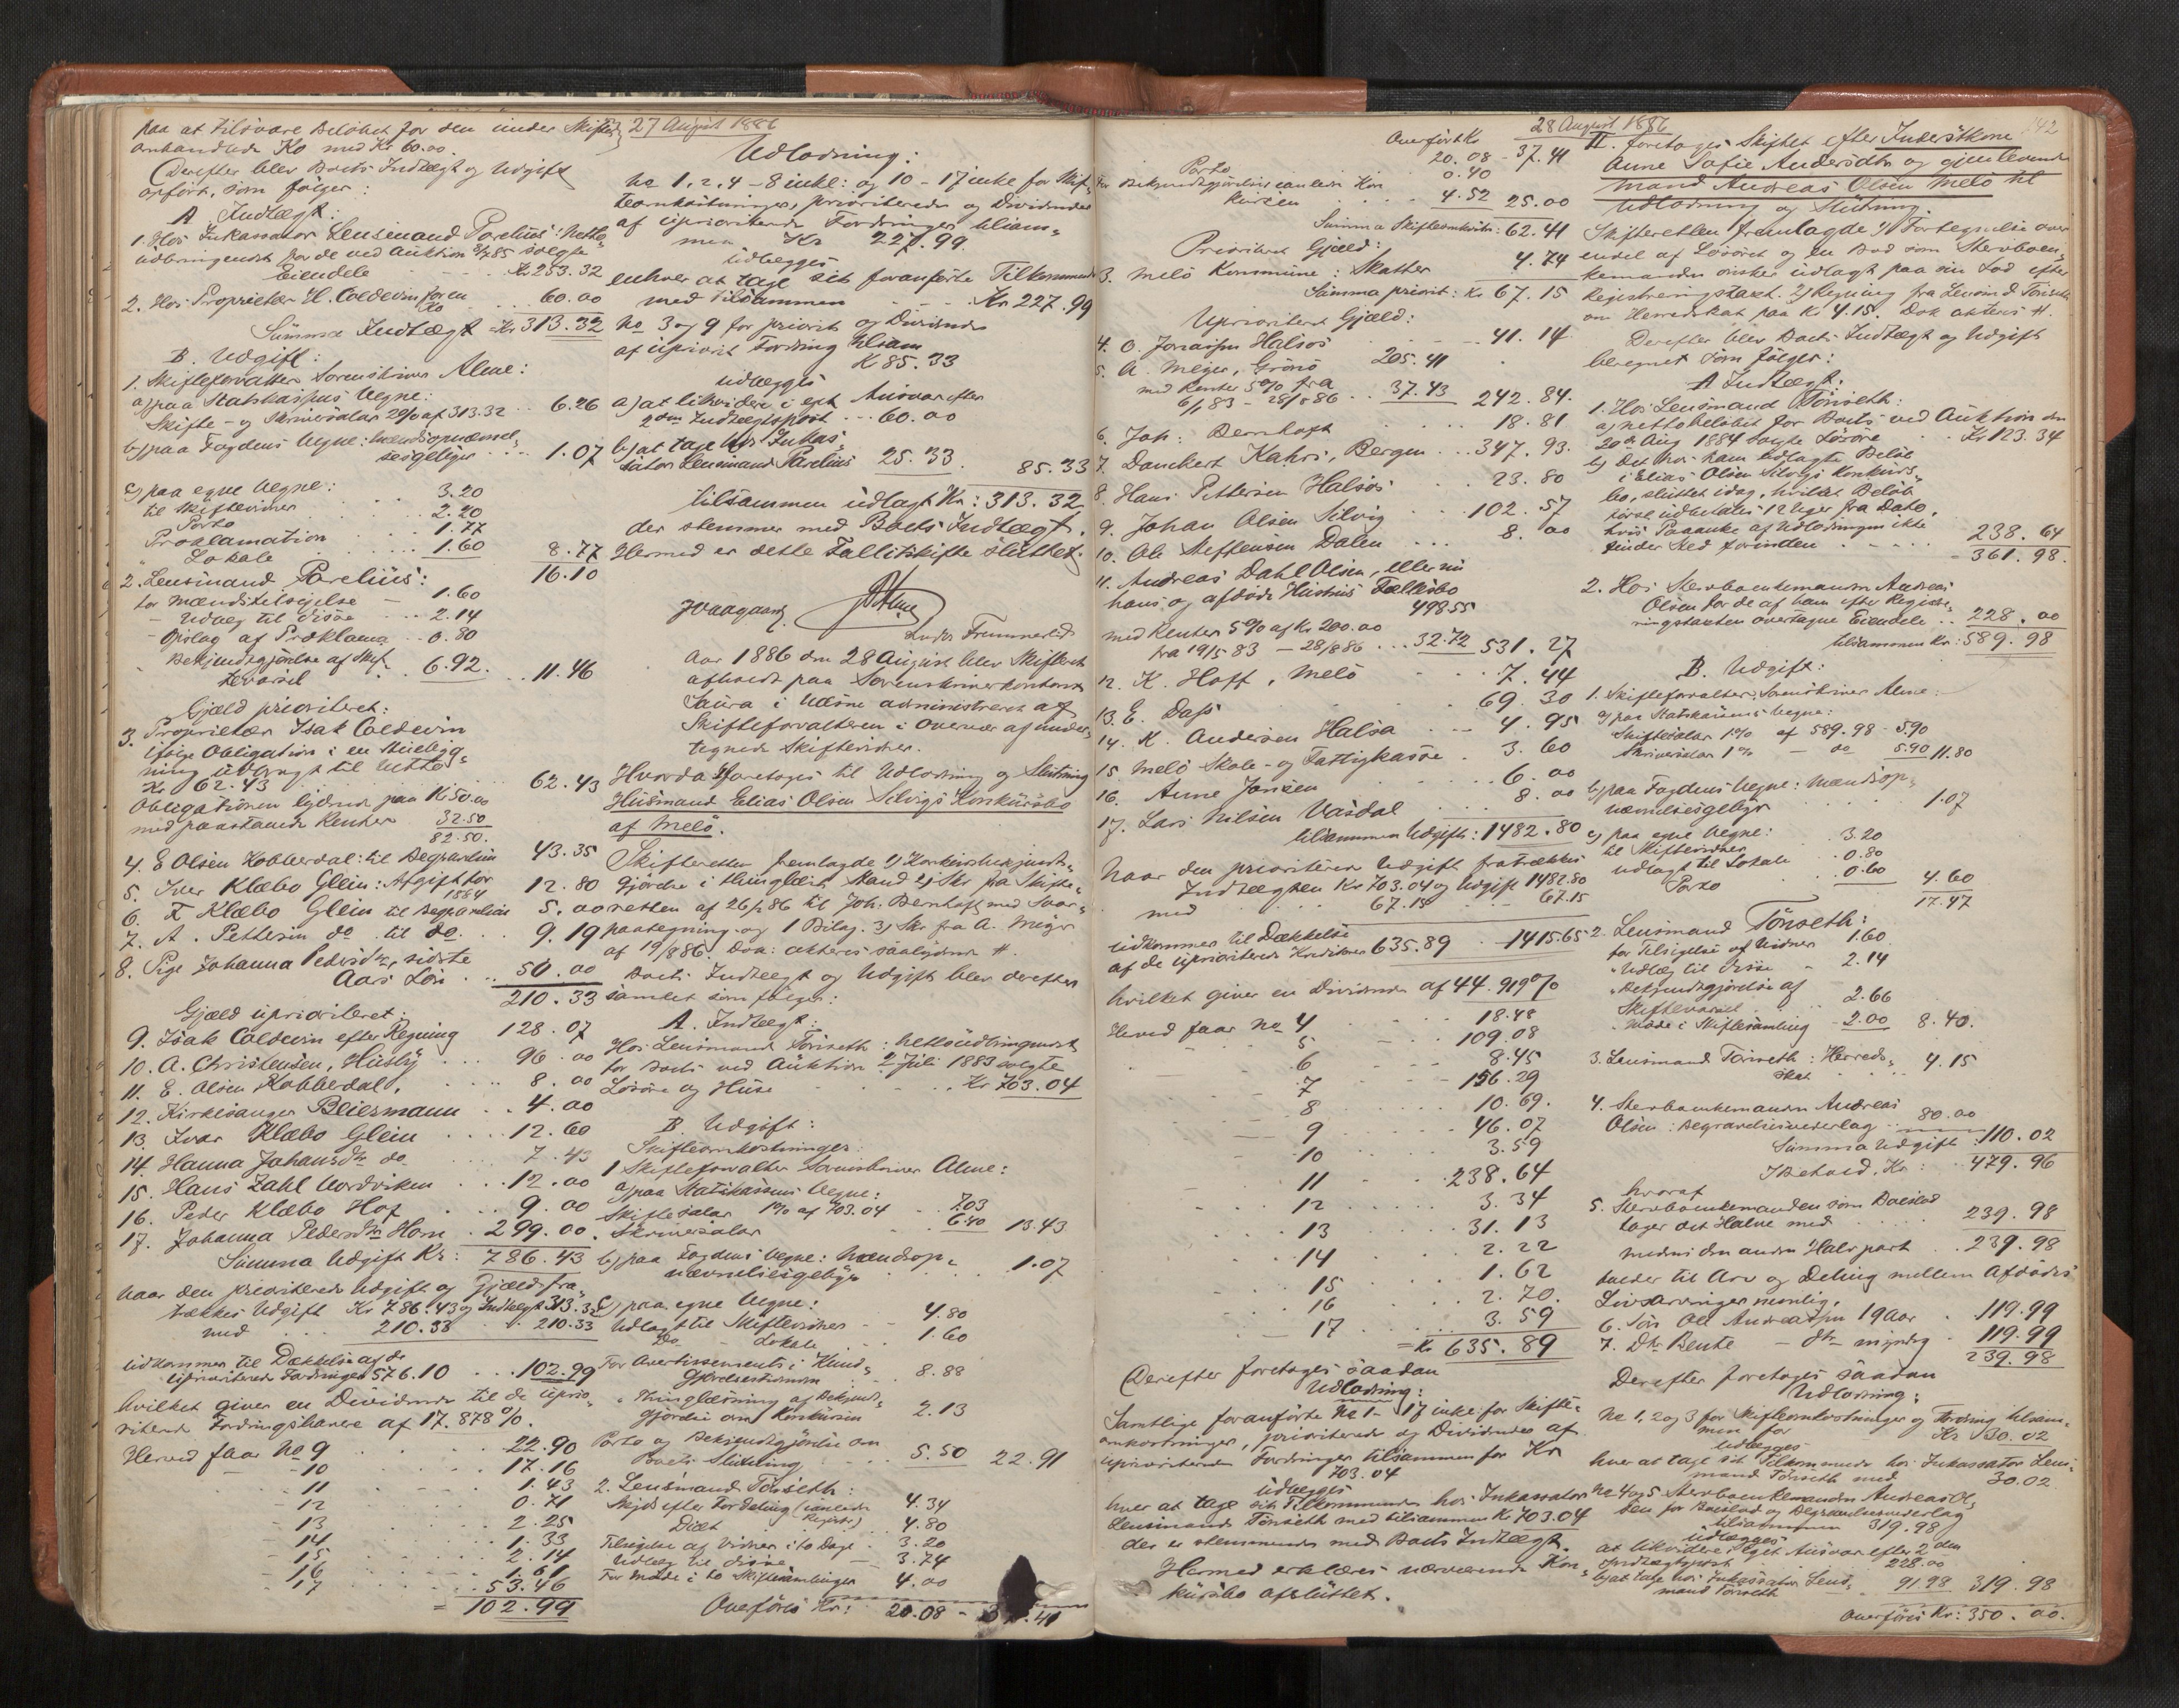 paa at tilsvare Beløbet for den under Skiftets
omhandlede Ko med Kr 60.00.
Derefter blev Boets Indtægt og Udgift
opført, som følger:
A Indtægt:
1. Hos Inkassator Lensmand Parelius: Netto
udbringendet for de ved Auktion 8/7 85 solgte
Eiendele Kr 253.32
2. Hos Proprietær H. Coldevin for en
Ko 60.00
Summa Indtægt = Kr 313.32
B. Udgift:
1. Skifteforvalter Sorenskriver Alme:
a) paa Statskassens Vegne:
Skifte- og Skriversalær 2% af 313.32 6.26
b) paa Fogdens Vegne: Mændsopnævnel-
sesgebyr 1.07
c) paa egne Vegne:
til Skiftevidner 3.20
Porto 2.20
Proklamation 1.77
" Lokale 1.60 8.77
16.10
2. Lensmand Parelius:
for Mændstilsigelse 1.60
- Udlæg til disse 2.14
- Opslag af Proklama 0.80
" Bekjendtgjørelse af Skif-
tevarsel 6.92 11.46
Gjæld prioriteret:
3. Proprietær Isak Coldevin
ifølge Obligation i en Stuebyg-
ning udbragt til Netto
Kr 62.43 62.43
Obligationen lydende paa Kr 50.00
med paastaaende Renter 32.50
82.50.
4. E Olsen Kobberdal: til Begravelsen 43.35
5. Iver Klæbo Glein: Afgift for
1884 12.80
6. I Klæbo Glein til Begravelsen 5.00
7. A. Pettersen do til do. 9.19
8. Pige Johanna Pedersdtr, sidste
Aars Løn 50.00
210.33
Gjæld uprioriteret:
9. Isak Coldevin efter Regning 128.07
10. A. Christensen, Husby 96.00
11. E. Olsen Kobberdal, 8.00
12. Kirkesanger Beiermann 4.00
13. Ivar Klæbo Glein 12.60
14. Hanna Johansdtr do 7.43
15. Hans Zahl Nordviken 12.00
16. Peder Klæbo Hof 9.00
17. Johanna Pedersdtr Horn 299.00
Summa Udgift Kr: 786.43
Naar den prioriterede Udgift og Gjæld fra-
trækkes Udgift Kr 786.43 og Indtægt 313.32
med 210.33 210.33
udkommer til Dækkelse af de
uprioriterede Fordringer 576.10 102.99
hvilket giver en Dividende til de uprio-
riterede Fordringshavere af 17.878%.
Herved faar No 9 22.90
10 17.16
11 1.43
12 0.71
13 2.25
14 1.33
15 2.14
16 1.61
17 53.46
= 102.99
27 August 1886
Udlodning:
No 1, 2, 4 - 8 inkl: og 10 - 17 inkl for Skif-
teomkostninger, prioriterede og Dividender
af uprioriterede Fordringer tilsam-
men Kr 227.99
udlægges
enhver at tage sit foranførte Tilkommende
med tilsammen Kr 227.99
No 3 og 9 for priorit og Dividende
af uprivit Fordring tilsam
K 85.33
udlægges
a) at likvidere i eget Ansvar efter
2den Indtægtspost 60.00
b) at tage hos Inkas-
sator Lensmand Parelius 25.33 85.33
tilsammen udlagt Kr: 313.32
der stemmer med Boets Indtægt.
Hermed er dette Fallitskifte sluttet.
JVaagaard Alme
Aar 1886 den 28 August blev Skifteret
afholdt paa Sorenskriverkontoret
Saura i Næsne administreret af
Skifteforvalteren i Overvær af under-
tegnede Skiftevidner.
Hvorda foretoges til Udlodning og Slutning
Husmand Elias Olsen Selvigs Konkursbo
af Melø.
Skifteretten fremlagde 1) Konkursbekjendt-
gjørelse i thinglæst Stand 2) Skr fra Skifte-
retten af 26/2 86 til Joh. Bernhoft med Svar-
paategning og 1 Bilag. 3) Skr fra A. Meyer
af 19/8 86. Dok: akteres saalydende #.
Boets Indtægt og Udgift blev derefter
samlet som følger:
A. Indtægt:
Hos Lensmand Tønseth: Nettoudbringendet
for Boets ved Auktion 2 Juli 1883 solgte
Løsøre og Huse Kr 703.04
B. Udgift:
Skifteomkostninger
1 Skifteforvalter Sorenskriver Alme:
a) paa Statskassens Vegne:
Skiftesalær 1% af 703.04 7.03
Skriversalær 6.40 13.43
b) paa Fogdens Vegne: Mændsop-
nævnelsesgebyr 1.07
c) paa egne Vegne:
Udlagt til Skiftevidner 4.80
Do - Lokale 1.60
For Avertissements i Kund-
gjørelsestidende 8.88
" Thinglæsning af Bekjendt-
gjørelse om Konkursen 2.13
Porto og Bekjendtgjørelse om
Boets Slutning 5.50 22.91
2. Lensmand Tønseth:
Skyds efter Fordeling 4.34
Diæt 4.80
Tilsigelse af Vidner i to Dage 3.20
Udlæg til disse 3.74
For Møde i to Skiftesamlinger 4.00
Overføres Kr: 20.08 - 37.41
28 August 1886
Overført Kr 20.08 - 37.41
Porto 0.40
For Bekjendtgjørelser om Kon
kursen 4.52 25.00
Summa Skifteomkostn: 62.41
Prioriteret Gjæld:
3. Melø Kommune: Skatter 4.74
Summa priorit: Kr 67.15
Uprioriteret Gjæld:
4. O. Jonassen Halsøs 41.14
5. A. Meyer, Grønø 205.41
med Renter 5% fra
6/1 83 - 28/8 86 37.43 242.84.
6. Joh: Bernhoft 18.81
7. Danckert Krohn, Bergen 347.93.
8. Hans Pettersen Halsøs 23.80
9. Johan Olsen Selvig 102.57
10. Ole Steffensen Dalen 8.00
11. Andreas Dahl Olsen, eller nu
hans og afdøde Hustrus Fællesbo
498.55
med Renter 5% af Kr 200.00
fra 19/5 83 - 28/8 86 32.72 531.27
12. K. Hoff, Melø 7.44
13. E. Dass 69.30
14. K. Andersen Halsa 4.95
15 Melø Skole- og Fattigkasse 3.60
16. Anne Jonsen 6.00
17. Lars Nilsen Vasdal 8.00
tilsammen Udgift: 1482.80
Naar den prioriterede Udgift fratrækkes
Indtægten Kr 703.04 og Udgift 1482.80
med 67.15 67.15
udkommer til Dækkelse
af de uprioriterede Kreditorer 635.89 1415.65
hvilket giver en Dividende af 44.919%
Herved faar No 4 18.48
5 109.08
6 8.45
7 156.29
8 10.69.
9 46.07
10 3.59
11 238.64
12 3.34
13 31.13
14 2.22
15 1.62
16 2.70.
17 3.59
= Kr 635.89
Derefter foretoges saadan
Udlodning:
Samtlige foranførte No 1 - 17 inkl: for Skifte-
omkostninger, prioriterede og Dividender af
uprioriterede Fordringer tilsammen for Kr
703.04
udlægges
hver at tage sit Tilkommende hos Inkassator
Lensmand Tønseth med tilsammen Kr 703.04
der er stemmende med Boets Indtægt.
Hermed erklæres nærværende Kon-
kursbo afsluttet.
142
II. foretoges Skiftet efter Inderstkone
Anne Sofie Andersdtr og gjenlevende
Mand Andreas Olsen Melø til
Udlodning og Slutning.
Skifteretten fremlagde 1) Fortegnelse over
endel af Løsøret og en Baad som Stervboen-
kemanden ønsker udlagt paa sin Lod efter
Registreringstaxt. 2) Regning fra Lensmd Tønseth
om Herredskat paa Kr 4.15. Dok akteres #.
Derefter blev Boets Indtægt og Udgift
beregnet som følger:
A Indtægt:
1. Hos Lensmand Tønseth:
a) nettobeløbet for Boets ved Auktion den
20de Aug 1884 solgte Løsøre Kr 123.34
b) Det hos ham udlagte Beløb
i Elias Olsen Selvigs Konkurs-
bo, sluttet idag, hvilket Beløb
først udbetales 12 Uger fra Dato,
hvis Paaanke af Udlodningen ikke
finder Sted forinden 238.64
361.98.
2. Hos Stervboenkemanden Andreas
Olsen for de af ham efter Registre-
ringstaxten overtagne Eiendele 228.00
tilsammen Kr: 589.98
B. Udgift:
1. Skifteforvalter Sorenskriver Alme:
a) paa Statskassens Vegne:
Skiftesalær 1% af 589.98 - 5.90
Skriversalær 1% - do 5.90 11.80
b) paa Fogdens Vegne: Mændsop-
nævnelsesgebyr 1.07
c) paa egne Vegne:
til Skiftevidner 3.20
udlagt til Lokale 0.80
Porto 0.60 4.60
17.47
2. Lensmand Tønseth:
for Tilsigelse af Vidner 1.60
" Udlæg til disse 2.14
" Bekjendtgjørelse af
Skiftevarsel 2.66
" Møde i Skiftesamling 2.00 8.40.
3. Lensmand Tønseth: Herreds-
skat 4.15
4. Stervboenkemanden Andreas
Olsen: Begravelsesvederlag 80.00
Summa Udgift: 110.02
I Behold, Kr: 479.96
hvoraf
5. Stervboenkemanden som Boeslod
tager det Halve med 239.98
medens den anden Halvpart 239.98
falder til Arv og Deling mellem Afdødes
Livsarvinger nemlig.
6. Søn Ole Andreassen 19 Aar 119.99
7. Dtr Bente - dtr myndig 119.99
239.98
Derefter foretoges saadan
Udlodning:
No 1, 2 og 3 for Skifteomkostninger og Fordring tilsam-
men for Kr 30.02
udlægges
hver at tage sit Tilkommende hos Inkassator Lens-
mand Tønseth med 30.02
No 4 og 5 Stervboenkemanden Andreas Ol-
sen for Boeslod og Begravelsesvederlag
tilsammen 319.98
udlægges
at likvidere i eget Ansvar efter 2den
Indtægtspost 228.00
b) at tage hos Inkassator Lens-
mand Tønseth 91.98 319.98
Overføres Kr: 350.00.